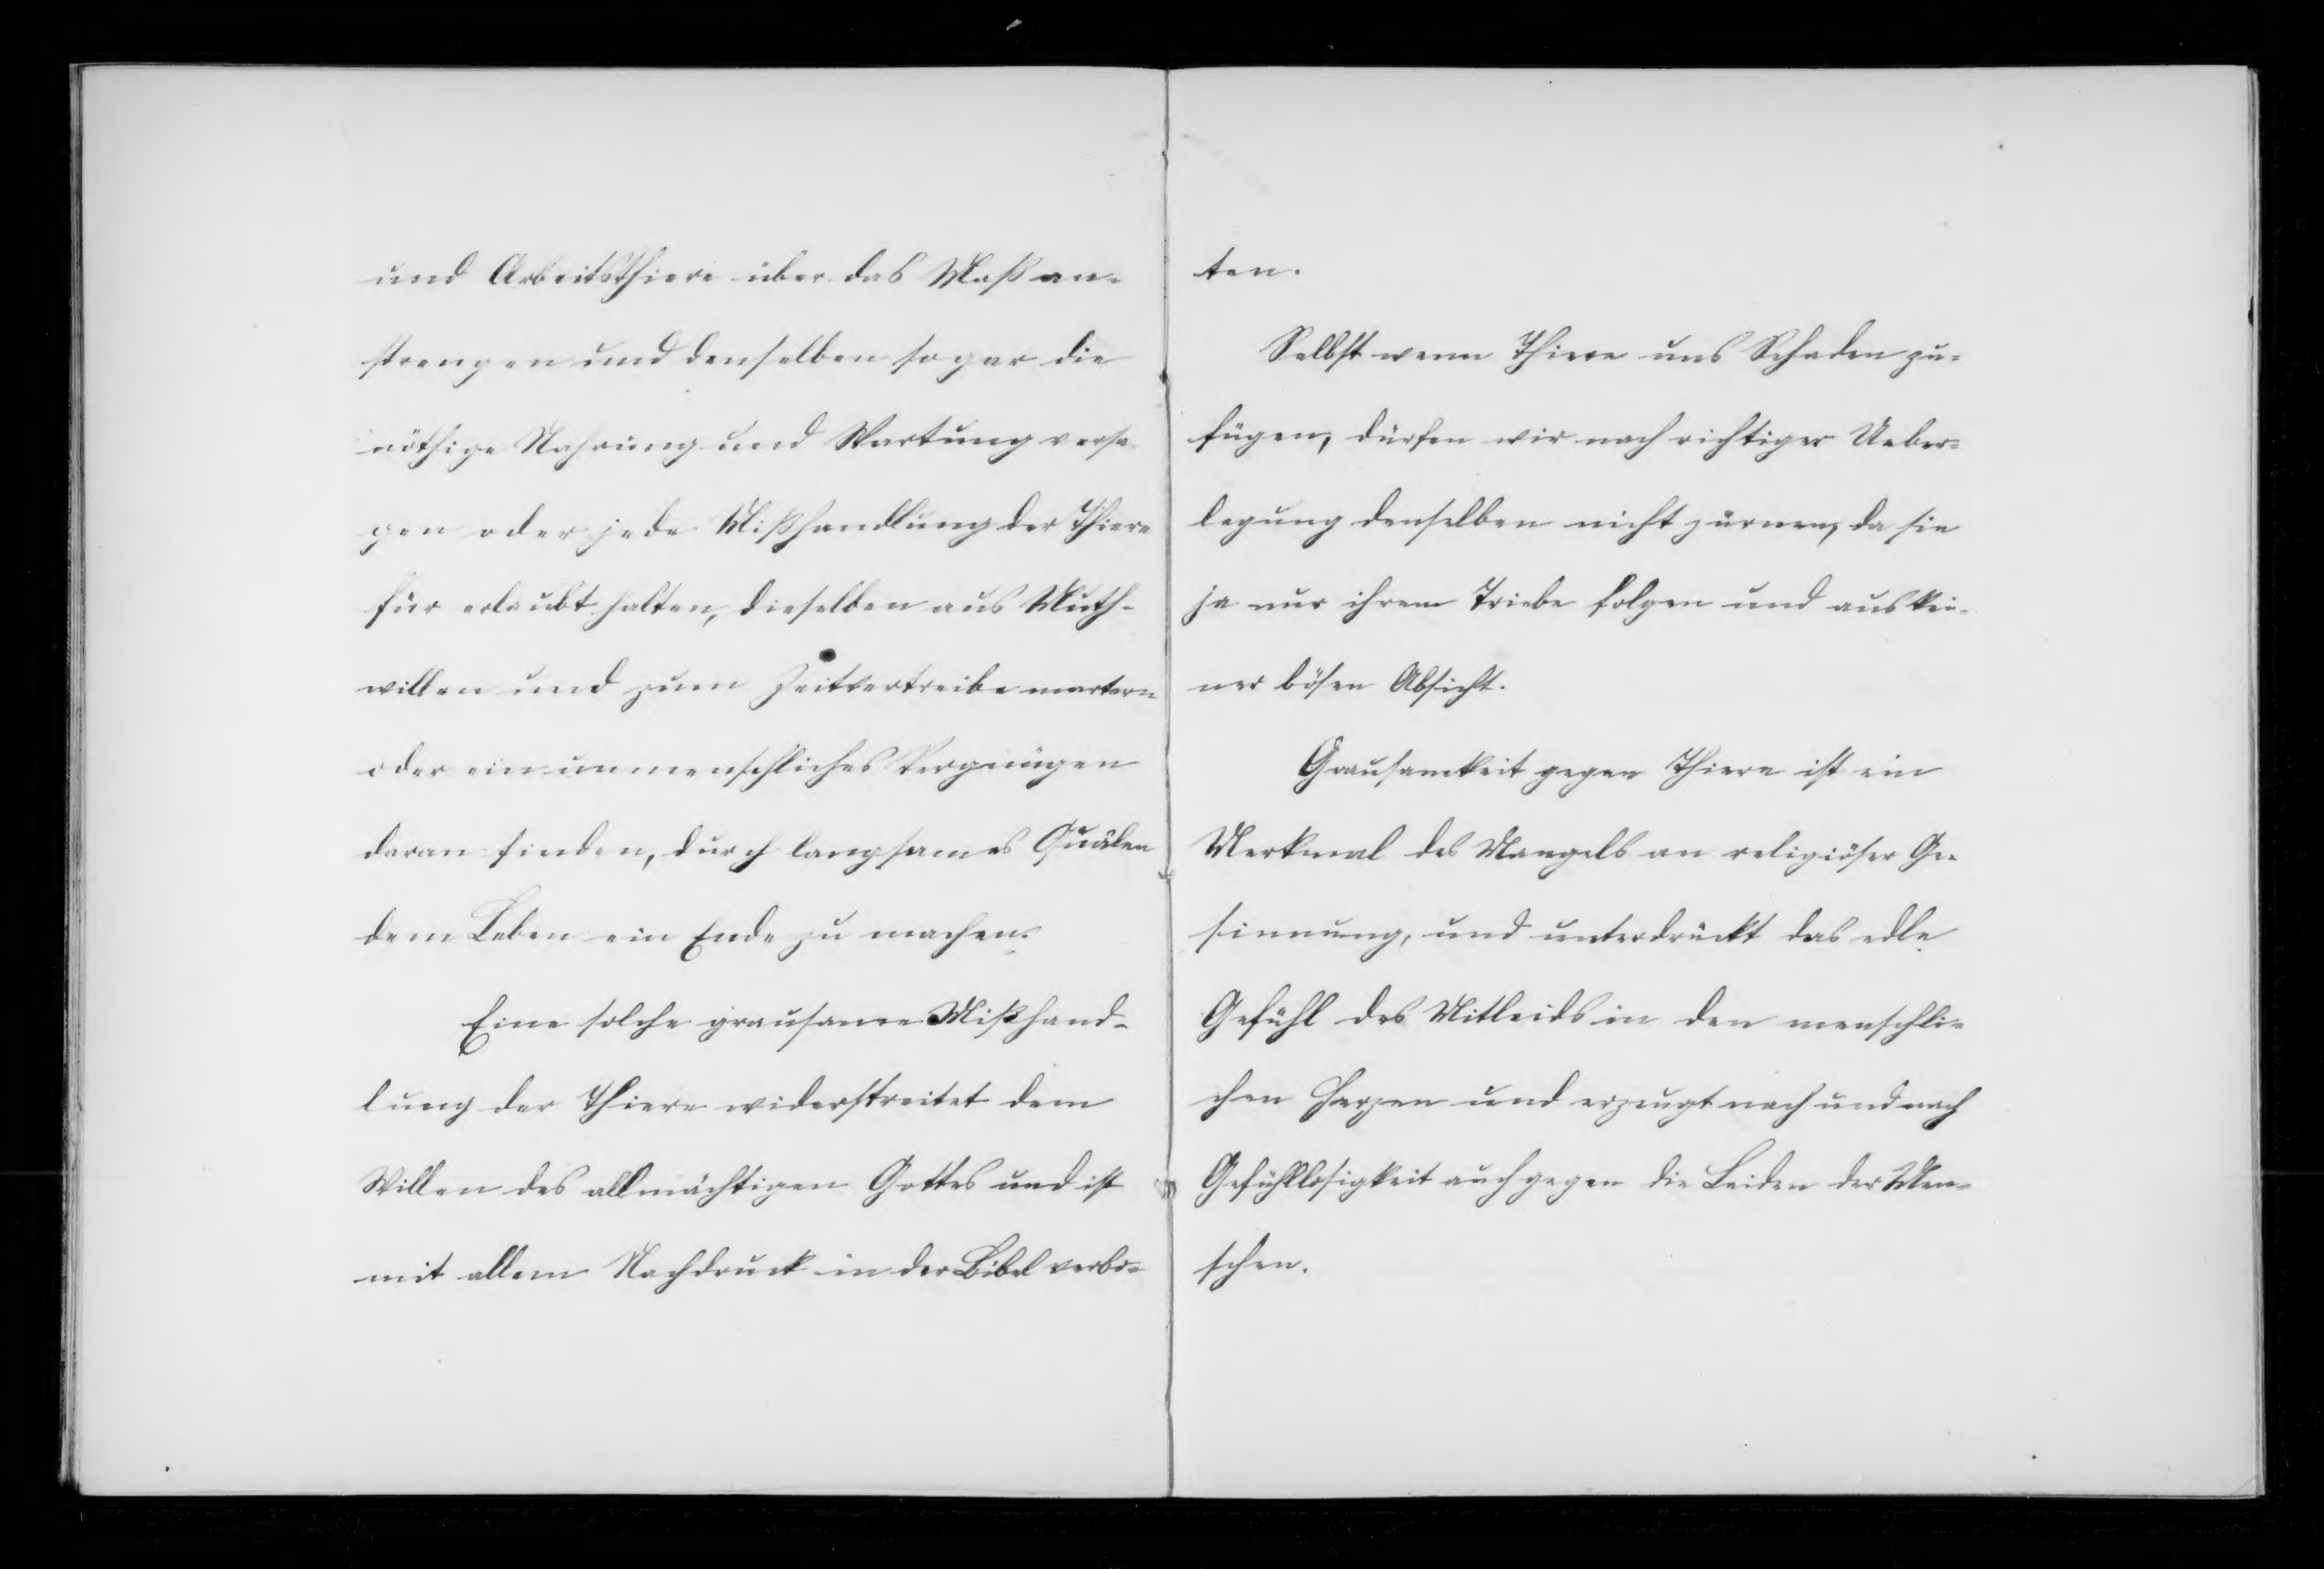 und Arbeitsthiere über das Maß an-
strengen und denselben sogar die
nöthige Nahrung und Wartung versa-
gen oder jede Mißhandlung der Thiere
für erlaubt halten, dieselben aus Muth-
willen und zum Zeitvertreibe martern
oder ein unmenschliches Vergnügen
daran finden, durch langsames Quälen
dem Leben ein Ende zu machen.
Eine solche grausame Mißhand-
lung der Thiere widerstreitet dem
Willen des allmächtigen Gottes und ist
mit allem Nachdruck in der Bibel verbo-
ten.
Selbst wenn Thiere uns Schaden zu-
fügen, dürfen wir nach richtiger Ueber-
legung denselben nicht zürnen, da sie
ja nur ihrem Triebe folgen und aus kei-
ner bösen Absicht.
Grausamkeit gegen Thiere ist ein
Merkmal des Mangels an religiöser Ge-
sinnung, und unterdrückt das edle
Gefühl des Mitleids in den menschli-
chen Herzen und erzeugt nach und nach
Gefühllosigkeit auch gegen die Leiden der Men-
schen.